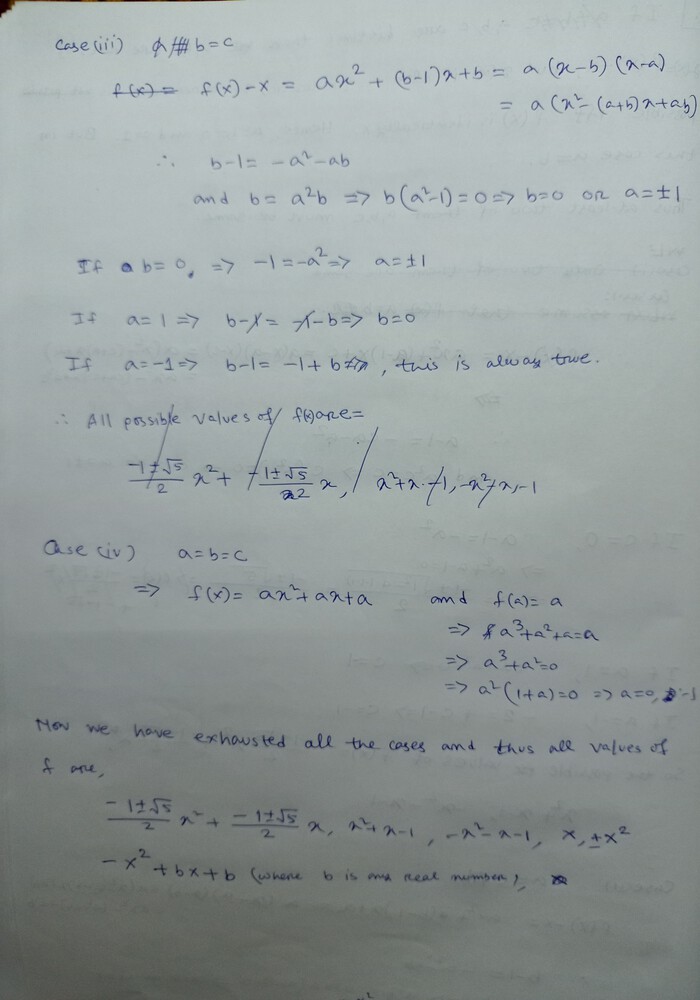 Case(iii) b=c
f(x) = f(x)-x = ax² + (b-1)x+b = a (x-b) (x-a)
= a (x²-(a+b)x+ab)
∴ b-1 = -a²-ab
and b = a²b => b(a²-1)=0 => b=0 or a=±1
If b=0, => -1=-a² => a=±1
If a=1 => b-1 = -1-b => b=0
If a=-1 => b-1 = -1+b, this is always true.
∴ All possible values of f(x) are =
(-1±√5)/2 x² + (-1±√5)/2 x, x²+x-1, -x²-x-1
Case(iv) a=b=c
=> f(x) = ax²+ax+a and f(a)=a
=> a³+a²+a=a
=> a³+a²=0
=> a²(1+a)=0 => a=0, -1
Now we have exhausted all the cases and thus all values of
f are,
(-1±√5)/2 x² + (-1±√5)/2 x, x²+x-1, -x²-x-1, x, ±x²
-x²+bx+b (where b is any real number),